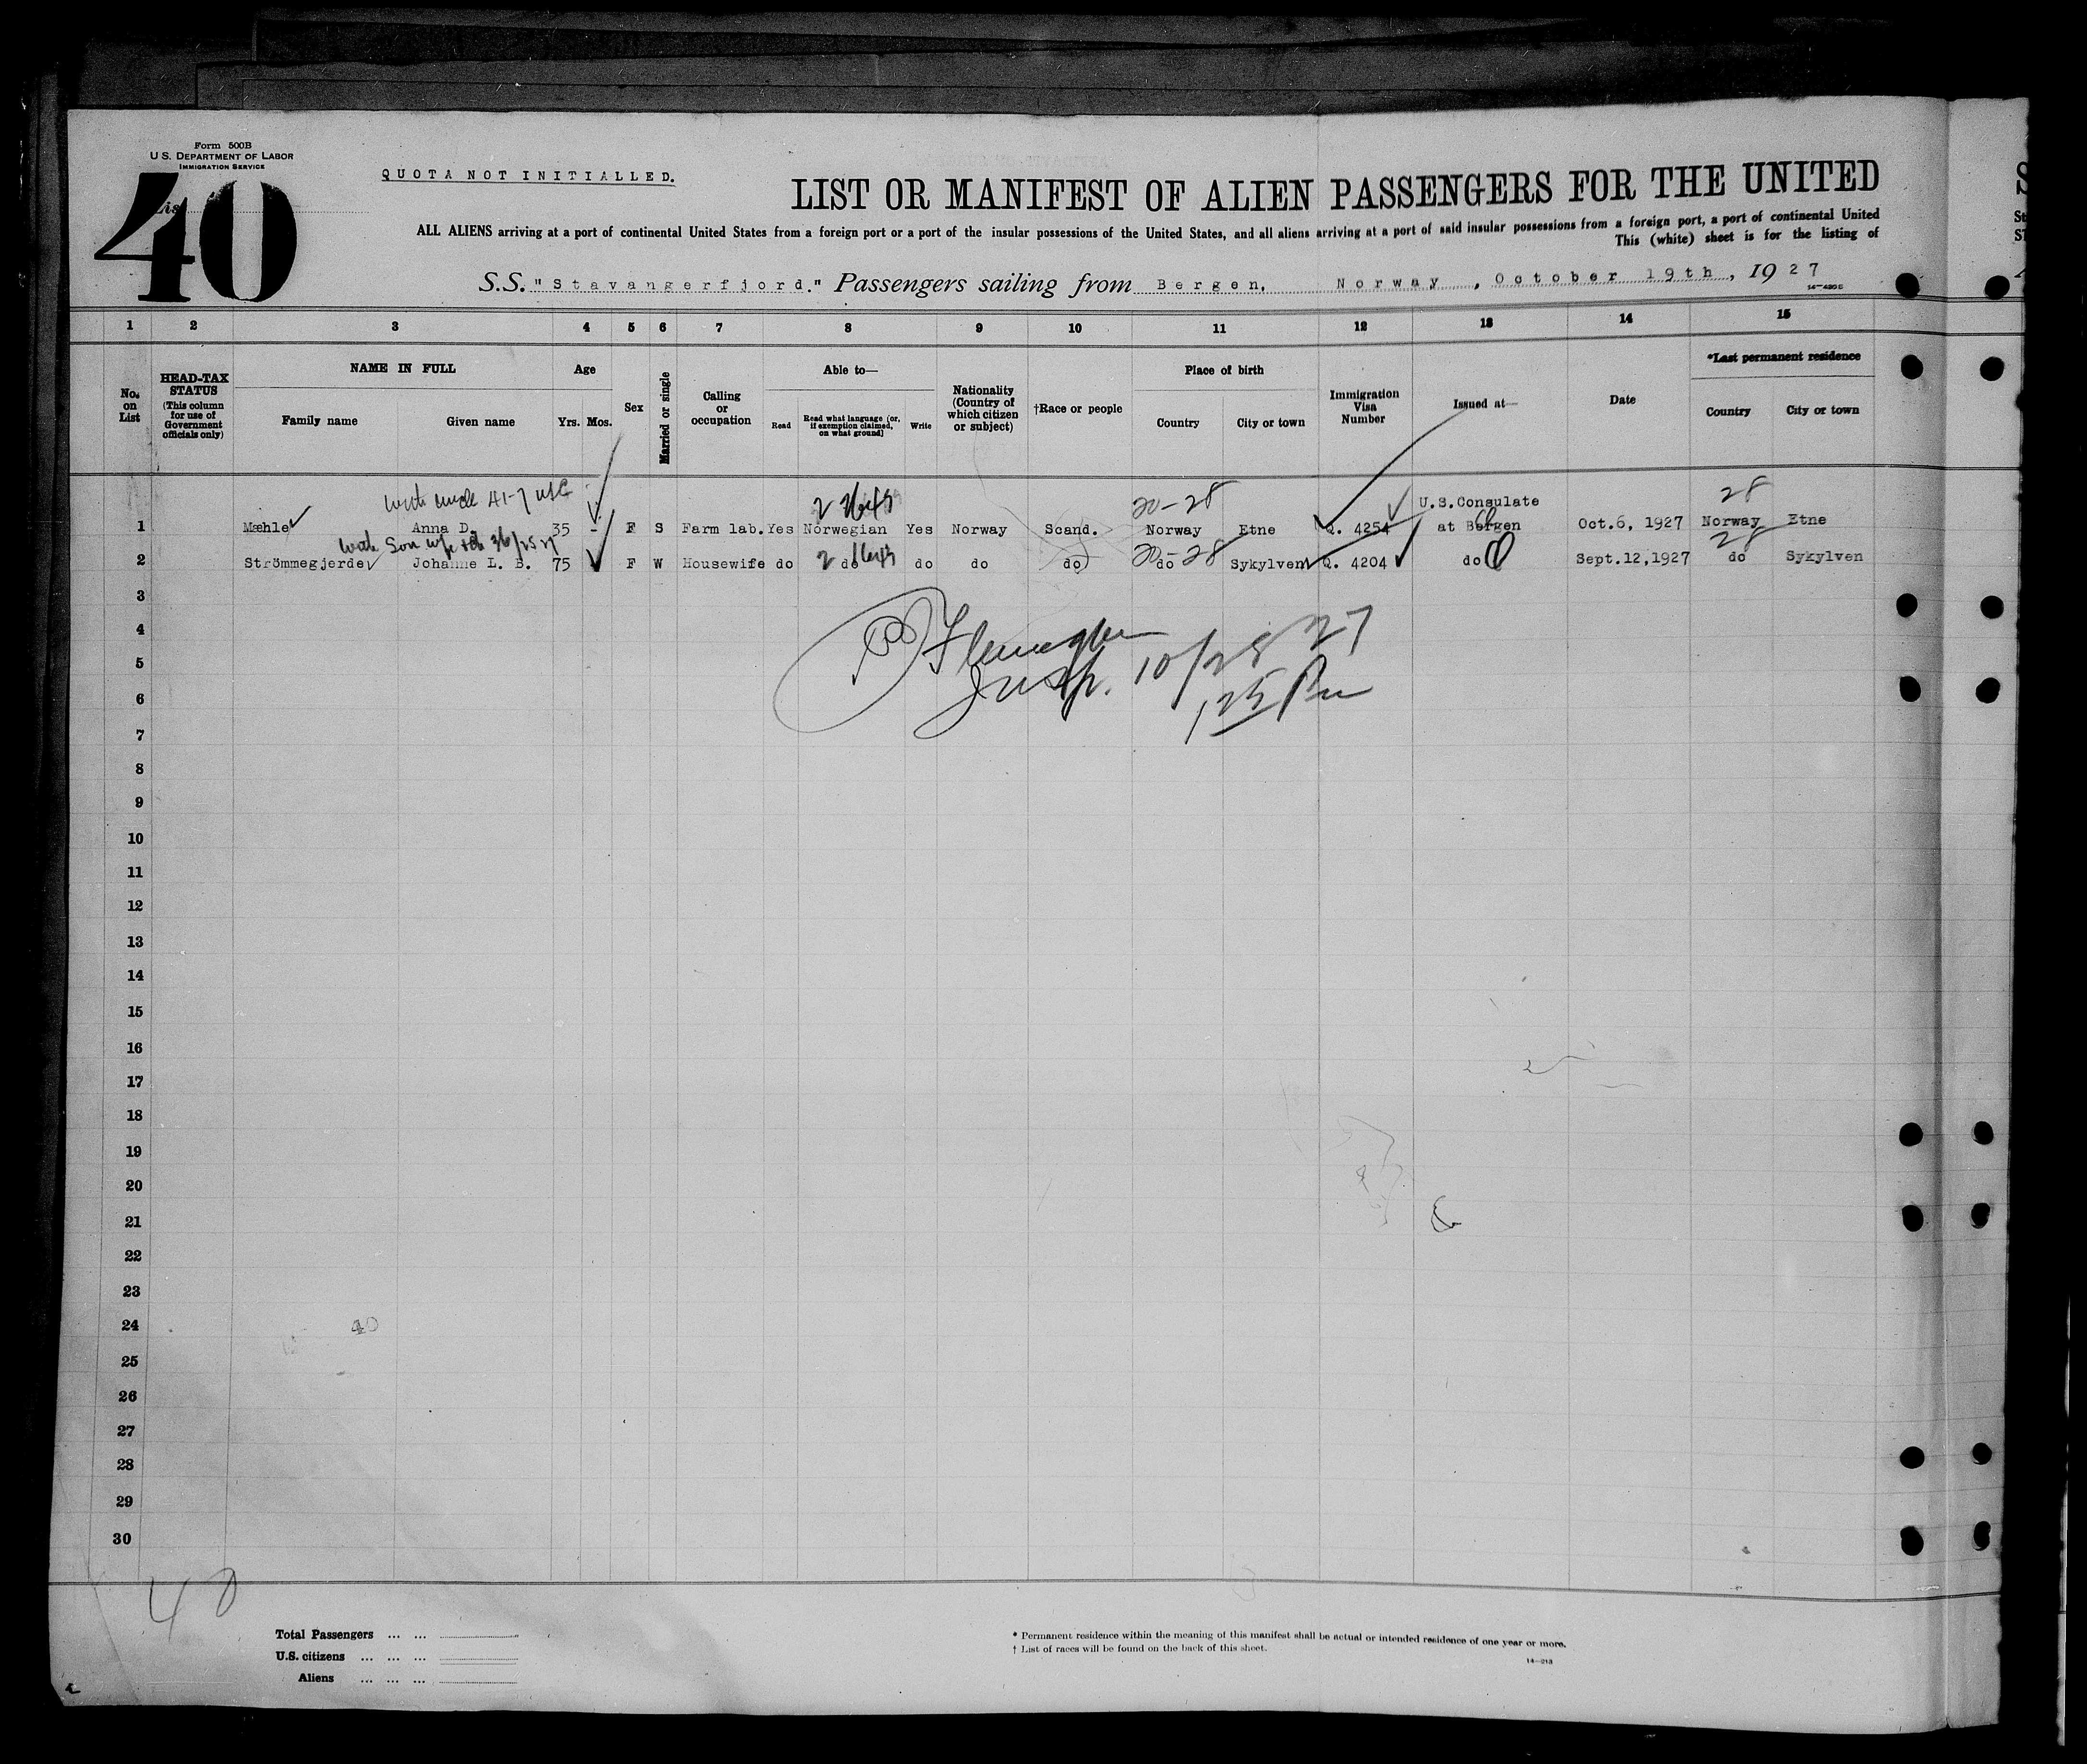 Form 500B
U.S. DEPARTMENT OF LABOR
IMMIGRATION SERVICE
40
QUOTA NOT INITIALLED.
LIST OR MANIFEST OF ALIEN PASSENGERS FOR THE UNITED
ALL ALIENS arriving at a port of continental United States from a foreign port or a port of the insular possessions of the United States, and all aliens arriving at a port of said insular possessions from a foreign port, a port of continental United
This (white) sheet is for the listing of
S.S. "Stavangerfjord." Passengers sailing from Bergen, Norway, October 19th, 1927
1 2 3 4 5 6 7 8 9 10 11 12 13 14 15
No. on List
HEAD-TAX STATUS
(This column for use of Government officials only)
NAME IN FULL
Family name Given name
Age
Yrs. Mos.
Sex
Married or single
Calling or occupation
Able to—
Read Read what language (or, if exemption claimed, on what ground) Write
Nationality (Country of which citizen or subject)
†Race or people
Place of birth
Country City or town
Immigration Visa Number
Issued at—
Date
*Last permanent residence
Country City or town
with uncle 41-7
20-28
28
1 Mæhle Anna D. 35 - F S Farm lab. Yes Norwegian Yes Norway Scand. Norway Etne Q. 4254 U.S.Consulate at Bergen Oct.6, 1927 Norway Etne
with Son
28
2 Strömmegjerde Johanne L. B. 75 F W Housewife do do do do do do Sykylven Q. 4204 do Sept.12,1927 do Sykylven
3
4
5
Insp. 10/28 27
6
1 25 Pm
7
8
9
10
11
12
13
14
15
16
17
18
19
20
21
22
23
24
40
25
26
27
28
29
30
40
Total Passengers ... ...
U.S. citizens ... ... ...
Aliens ... ... ...
* Permanent residence within the meaning of this manifest shall be actual or intended residence of one year or more.
† List of races will be found on the back of this sheet.
14—213